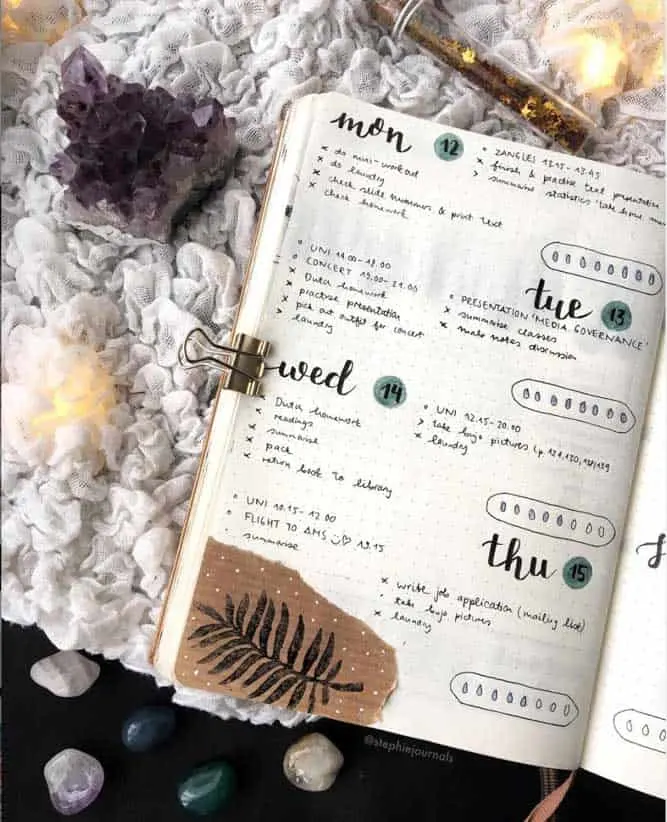 mon 12
x do mini-workout
x do laundry
x check slide summaries & print text
x check homework
• ZANGLES 13.15-13.45
x finish & practise text presentation
> summarise statistics 'take home
tue 13
• UNI 14.00-18.00
• CONCERT 19.00-21.00
x Duta homework
x practise presentation
x pick out outfit for concert
> laundry
• PRESENTATION 'MEDIA GOVERNANCE'
x summarise classes
x make notes discussion
wed 14
x Duta homework
x readings
x summarise
x pack
x return book to library
• UNI 12.15-20.00
> take bujo pictures
x laundry
thu 15
• UNI 10.15-12.00
• FLIGHT TO AMS 19.15
• summarise
x write job application (mailing list)
• take bujo pictures
x laundry
@stephiejournals